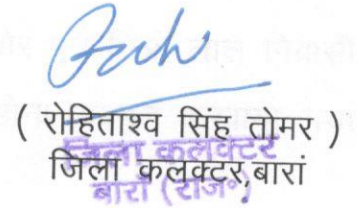 ( रोहिताश्व सिंह तोमर )
जिला कलक्टर
जिला कलक्टर,बारां
बारां (राज॰)